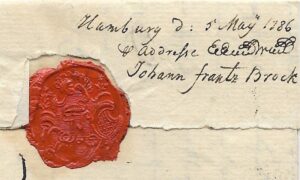 Hamburg d: 5 May 1786
& addresse
Johann frantz Brock